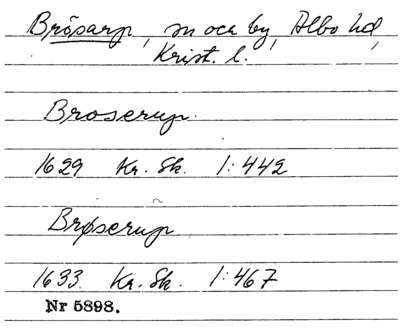 Brösarp, sn och by, Albo hd,
Krist. l.
Broserup.
1629 Kr. Sk. 1:442
Brøserup
1633. Kr. Sk. 1:467
Nr 5898.